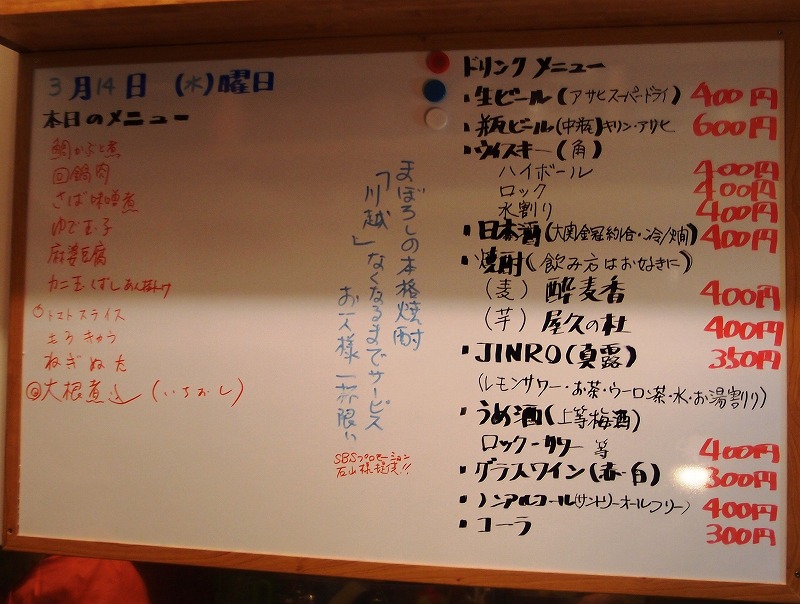 3月14日 (水)曜日
本日のメニュー
鯛かぶと煮
回鍋肉
さば味噌煮
ゆで玉子
麻婆豆腐
カニ玉
トマトスライス
もろきゅう
ねぎぬた
◎大根煮込 (いちおし)
まぼろしの本格焼酎
「川越」なくなるまでサービス
お一人様一杯限り
SBSプロモーション
石山様提供!!
ドリンクメニュー
・生ビール(アサヒスーパードライ) 400円
・瓶ビール(中瓶)キリン・アサヒ 600円
・ウイスキー(角)
ハイボール 400円
ロック 400円
水割り 400円
・日本酒(大関金冠 約1合・冷/燗) 400円
・焼酎(飲み方はお好きに)
(麦) 酔麦香 400円
(芋) 屋久の杜 400円
・JINRO(真露) 350円
(レモンサワー・お茶・ウーロン茶・水・お湯割り)
・うめ酒(上等梅酒)
ロック・サワー 等 400円
・グラスワイン(赤・白) 300円
・ノンアルコール(サントリーオールフリー) 400円
・コーラ 300円